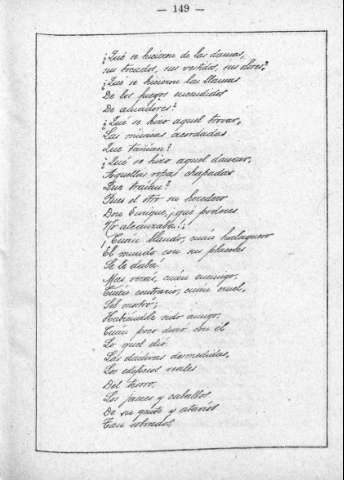 — 149 —
¿Qué se hicieron de las damas,
sus tocados, sus vestidos, sus olores?
¿Qué se hicieron las llamas
De los fuegos encendidos
De amadores?
¿Qué se hizo aquel trovar,
Las músicas acordadas
Que tañían?
¿Qué se hizo aquel danzar,
Aquellas ropas chapadas
Que traían?
Pues el otro su heredero
Don Enrique, ¡qué poderes
No alcanzaba!
¡Cuán blando, cuán halaguero
El mundo con sus placeres
Se le daba!
Mas verás, cuán enemigo,
Cuán contrario, cuán cruel,
Se mostró;
Habiéndole sido amigo,
Cuán poco duró con él
Lo que dió.
Las dádivas desmedidas,
Los edificios reales
Del tesoro,
Los jaeces y caballos
De su gente y atavíos
Tan sobrados